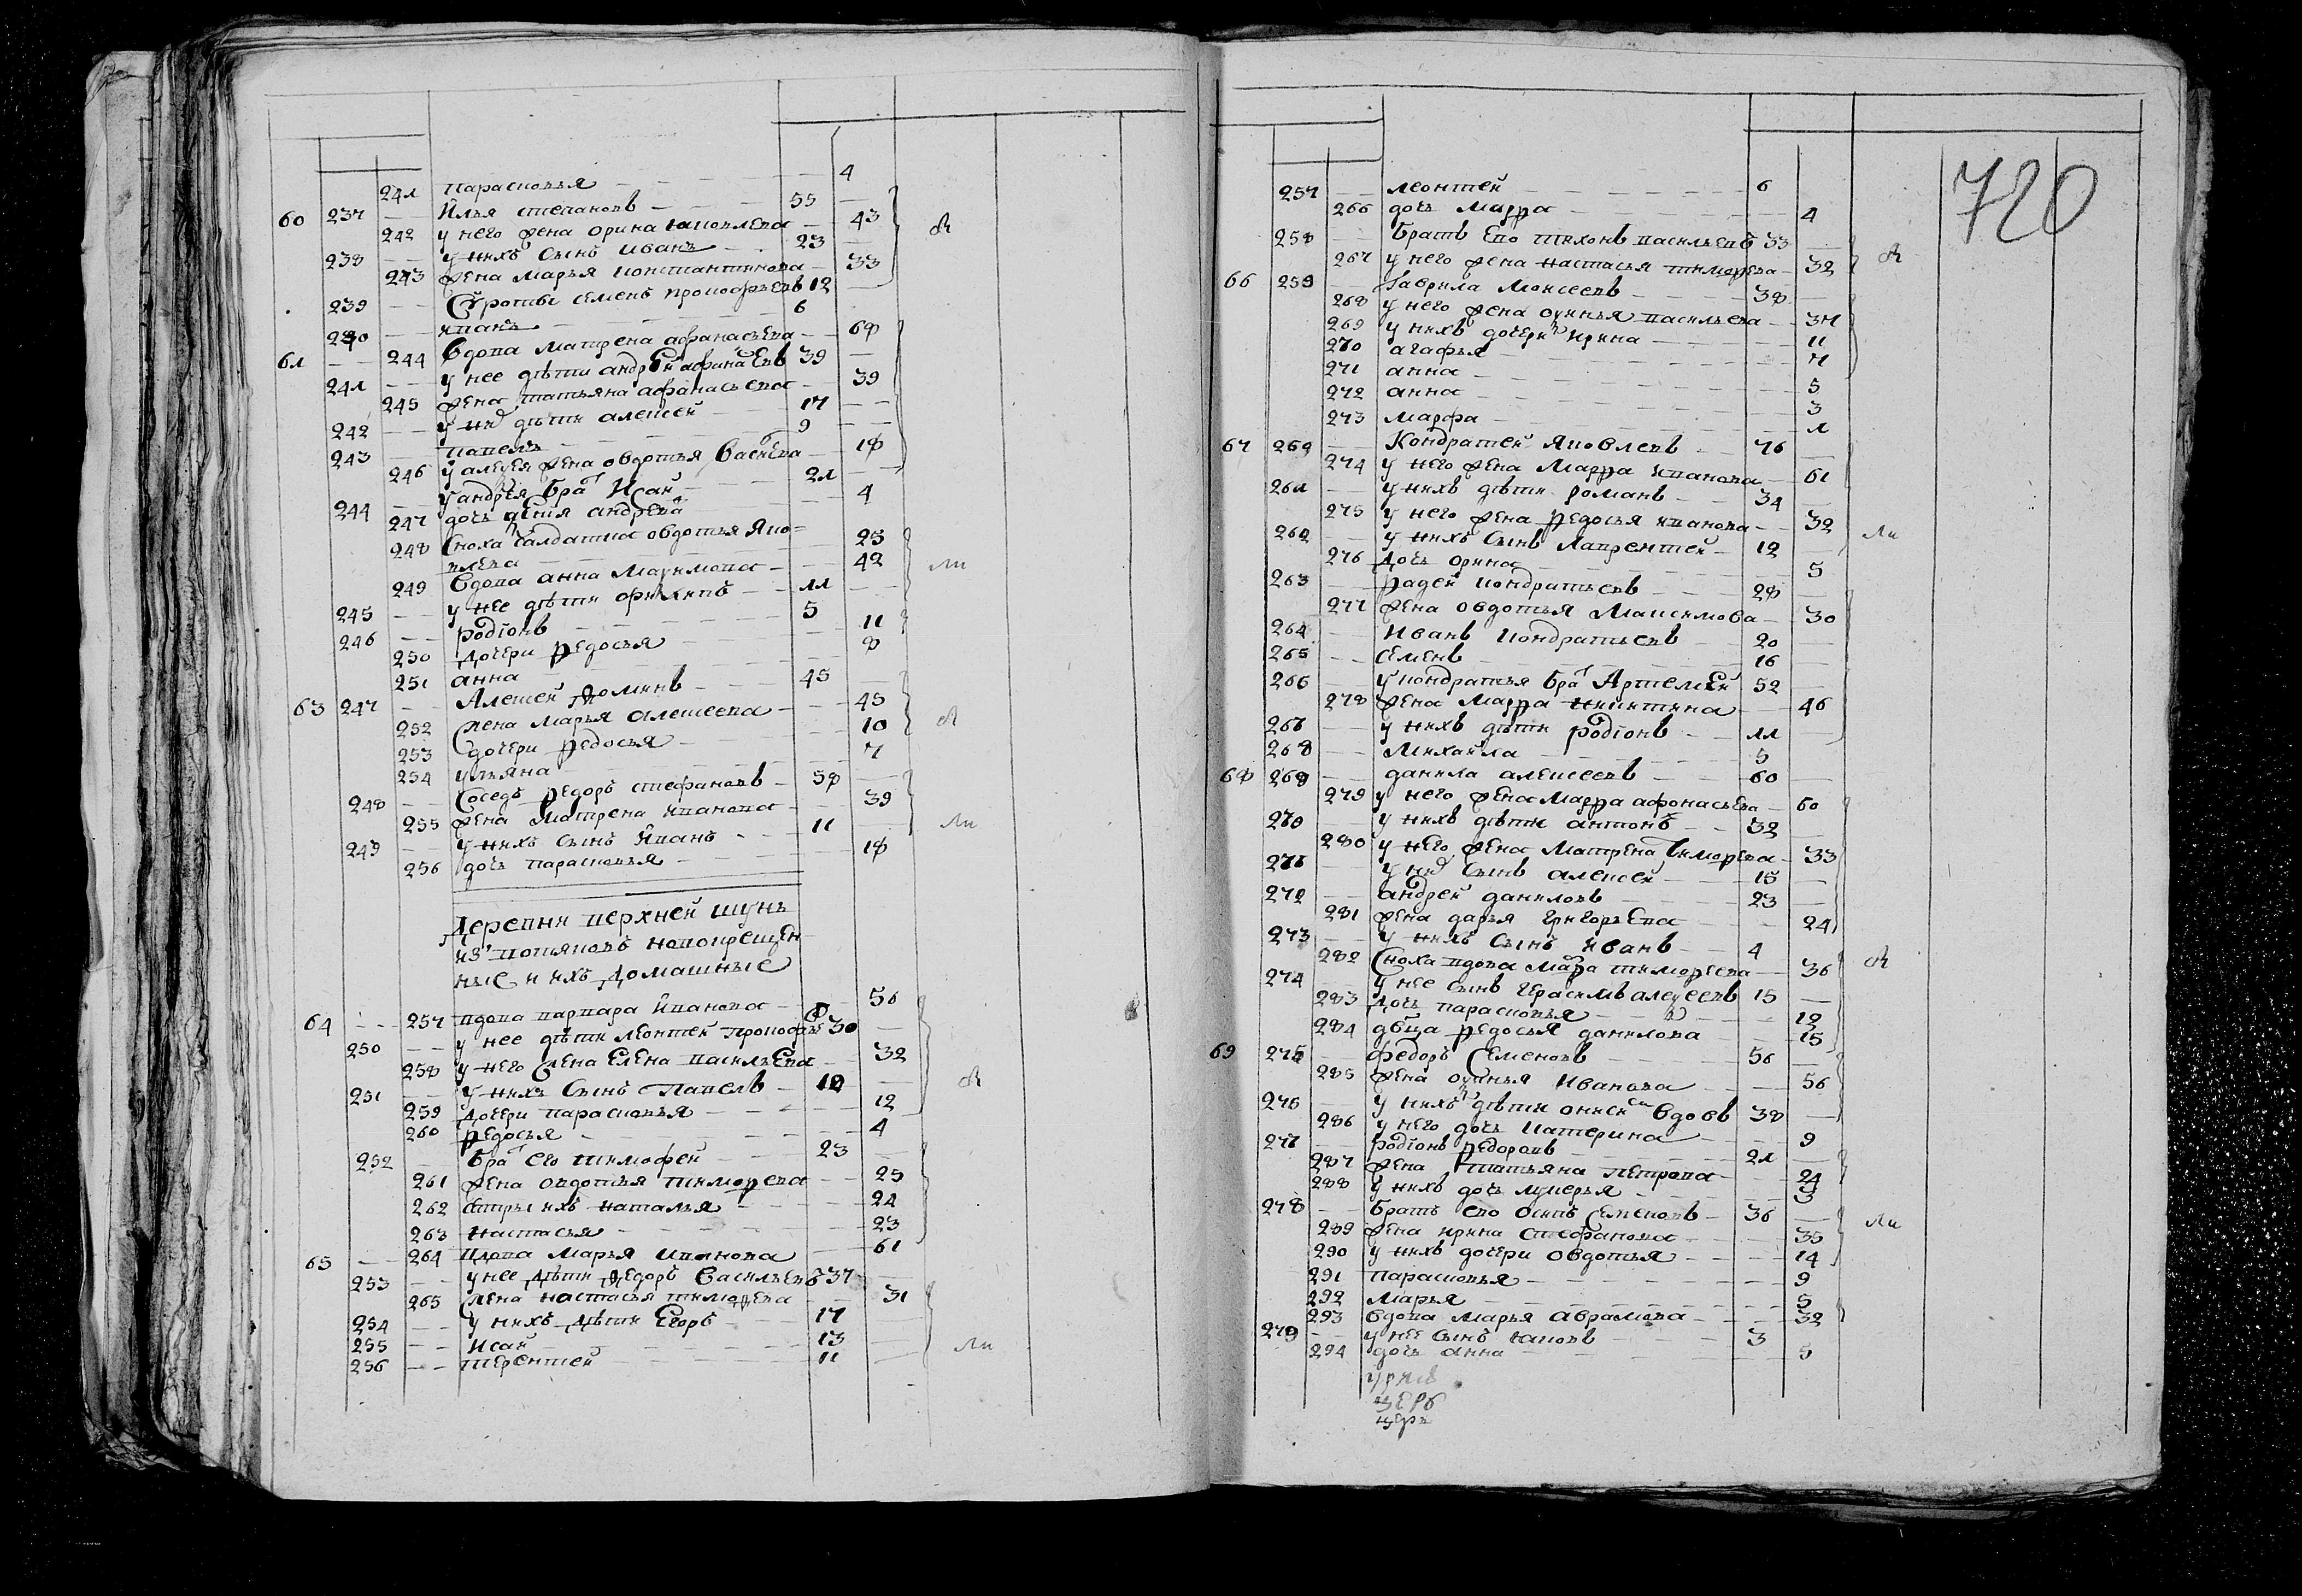 241 параскопья 4
60 237 Илья степановъ 55
242 у него жена орина яковлева 43
238 у нихъ сынъ иванъ 23
243 жена марья константинова 33
239 Сироты семенъ прокофьевъ 12
240 иванъ 6
61 244 Вдова матрена афанасьева 68
241 у нее дѣти андрей афанасьевъ 39
245 жена татьяна афанасьева 39
242 у них дѣти алексей 17
243 павелъ 9
246 у алексея жена овдотья васильева 18
244 у андрея брат Исай 21
247 дочь андреева 4
248 Сноха салдатка овдотья яко=
влева 25
249 Вдова анна Максимова 42
245 у нее дѣти филипъ 11
246 родіонъ 5
250 дочери федосья 11
251 анна 8
63 247 Алексей фоминъ 45
252 жена марья алексеева 45
253 дочери федосья 10
254 ульяна 7
248 Соседъ федоръ стефановъ 58
255 жена матрена иванова 39
249 у нихъ сынъ Иванъ 11
256 дочь парасковья 18
Деревни верхней шунь
изъ вотяковъ новокрещен
ные и ихъ домашные
64 257 вдова варвара Иванова 56
250 у нее дѣти леонтей прокофьев 30
258 у него жена Елена васильева 32
251 у нихъ сынъ Павелъ 12
259 дочери парасковья 12
260 федосья 4
252 брат его тимофей 23
261 жена овдотья тимофеева 25
262 сестры ихъ наталья 24
263 настасья 23
65 264 Вдова марья иванова 61
253 у нее дѣти федоръ васильевъ 37
265 жена настасья тимофеева 31
254 у нихъ дѣти Егоръ 17
255 Исай 13
256 терентей 11
720
257 леонтей 6
266 дочь марфа 4
258 братъ его тихонъ васильевъ 33
267 у него жена настасья тимофеева 32
66 259 Гаврила Моисеевъ 38
268 у него жена оксинья васильева 37
269 у нихъ дочери ирина 11
270 агафья 7
271 анна 5
272 анна 3
273 марфа 1
67 260 Кондратей яковлевъ 76
274 у него жена марфа иванова 61
261 у нихъ дѣти романъ 34
275 у него жена федосья иванова 32
262 у нихъ сынъ лаврентей 12
276 дочь орина 5
263 фадей кондратьевъ 28
277 жена овдотья Максимова 30
264 Иванъ кондратьевъ 20
265 семенъ 16
266 у кондратья брат Артемей 52
278 жена марфа никитина 46
267 у нихъ дѣти родіонъ 11
268 Михайла 5
68 269 данила алексеевъ 60
279 у него жена марфа афонасьева 60
270 у нихъ дѣти антонъ 32
280 у него жена матрена тимофеева 33
271 у них сынъ алексей 15
272 андрей даниловъ 23
281 жена дарья григорьева 24
273 у нихъ сынъ Иванъ 4
282 Сноха вдова марфа тимофеева 36
274 у нее сынъ герасимъ алексеевъ 15
283 дочь парасковья 12
284 девка федосья данилова 15
69 275 федоръ Семеновъ 56
285 жена оксинья Иванова 56
276 у нихъ дѣти онисим вдовъ 38
286 у него дочь катерина 9
277 родіонъ федоровъ 21
287 жена татьяна петрова 24
288 у нихъ дочь лукерья 3
278 братъ его осипъ Семеновъ 36
289 жена ирина стефанова 35
290 у нихъ дочери овдотья 14
291 парасковья 9
292 марья 5
293 вдова марья Аврамова 32
279 у нее сынъ яковъ 3
294 дочь анна 5